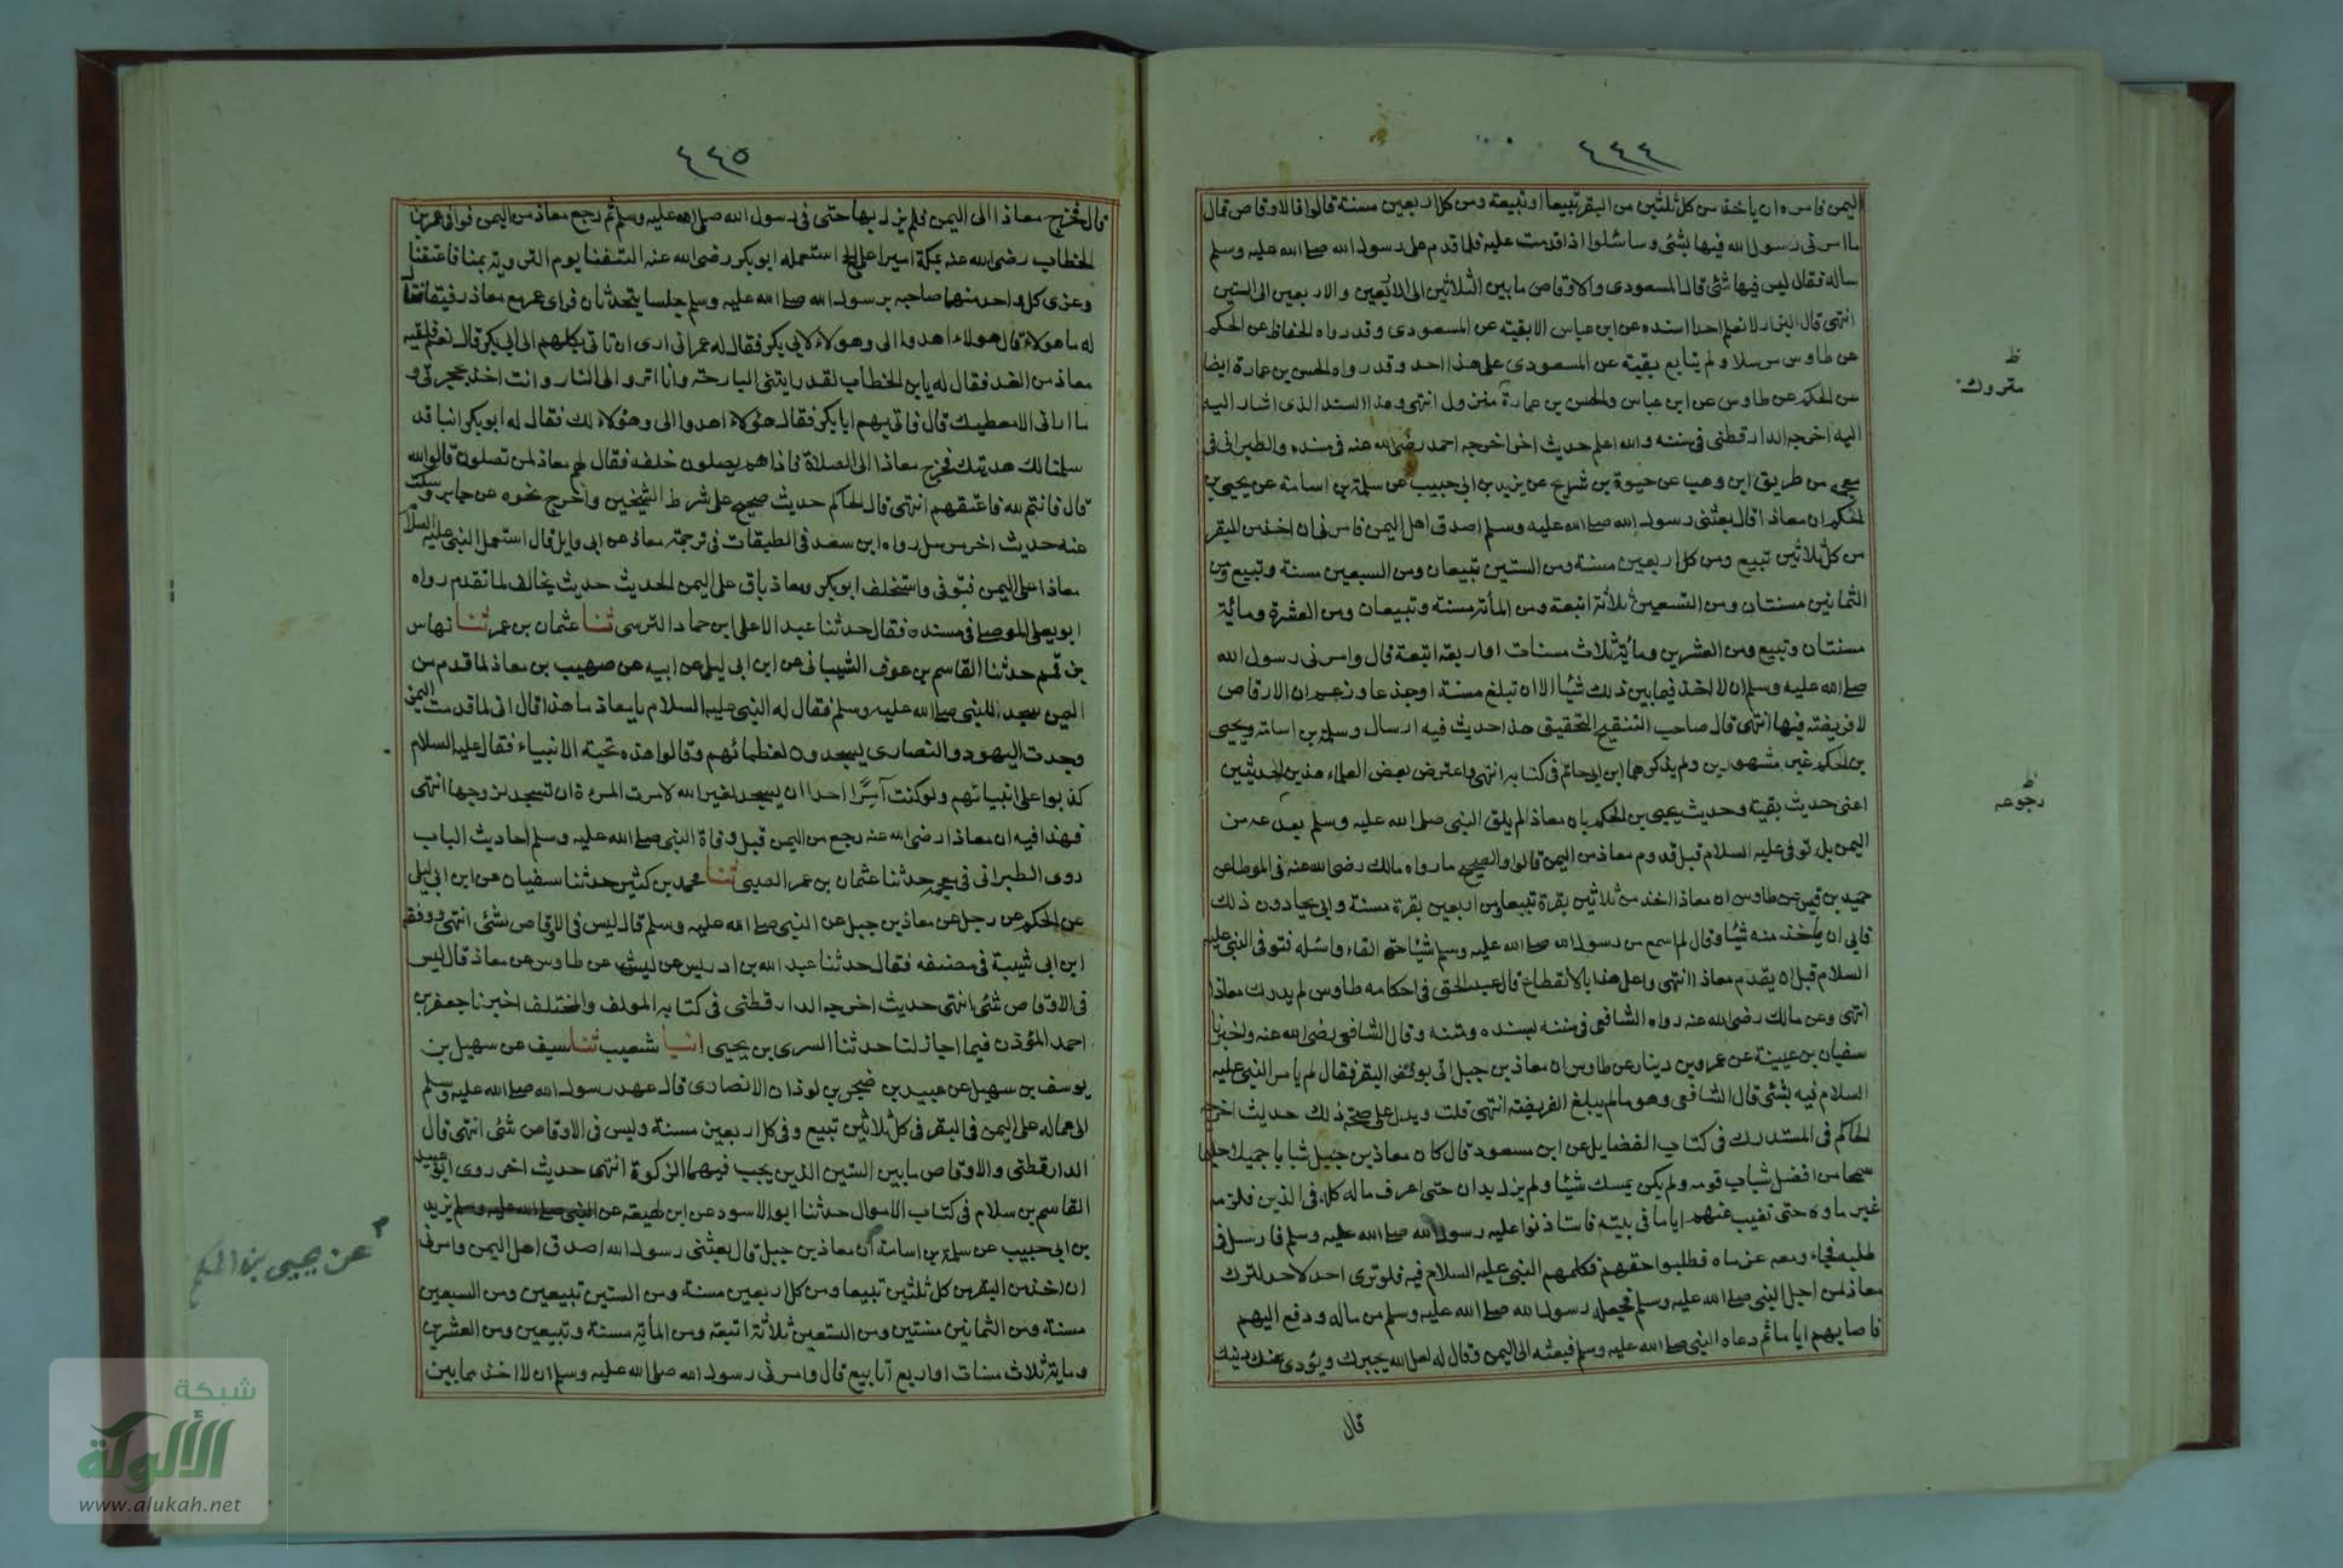 ٤٤٤
اليمن فامره ان ياخذ من كل ثلثين من البقر تبيعا او تبيعة ومن كل اربعين مسنة قالوا فالاوقاص قال
ما امرنى رسول الله فيها بشئ وساسئله اذا قدمت عليه فلما قدم على رسول الله صلى الله عليه وسلم
ساله فقال ليس فيها شئ قال المسعودى والاوقاص ما بين الثلاثين الى الاربعين والاربعين الى الستين
انتهى قال البزار لا نعلم احدا اسنده عن ابن عباس الا بقية عن المسعودى وقد رواه الحفاظ عن الحكم
عن طاوس مرسلا ولم يتابع بقية عن المسعودى على هذا احد وقد رواه الحسن بن عمارة ايضا
عن الحكم عن طاوس عن ابن عباس والحسن بن عمارة منزول انتهى وهذا السند الذى اشار اليه
اليه اخرجه الدارقطنى فى سننه والله اعلم حديث اخر اخرجه احمد رضى الله عنه فى مسنده والطبرانى فى
معجمه من طريق ابن وهب عن حيوة بن شريح عن يزيد بن ابى حبيب عن سلمة بن اسامة عن يحيى بن
الحكم ان معاذا قال بعثنى رسول الله صلى الله عليه وسلم اصدق اهل اليمن فامرنى ان اخذ من البقر
من كل ثلاثين تبيع ومن كل اربعين مسنة ومن الستين تبيعان ومن السبعين مسنة وتبيع ومن
الثمانين مسنتان ومن التسعين ثلاثة اتبعة ومن المأتة مسنة وتبيعان ومن العشرة ومائة
مسنتان وتبيع ومن العشرين ومأية ثلاث مسنات او اربعة اتبعة قال وامرنى رسول الله
صلى الله عليه وسلم ان لا اخذ فيما بين ذلك شيئا الا ان تبلغ مسنة او جذعا وزعم ان الارقاص
لا فريضة فيها انتهى قال صاحب التنقيح التحقيق هذا حديث فيه ارسال وسلمة بن اسامة ويحيى
بن الحكم غير مشهورين ولم يذكرهما ابن ابى حاتم فى كتابه انتهى واعترض بعض العلماء هذين الحديثين
اعنى حديث بقية وحديث يحيى بن الحكم بان معاذا لم يلق النبى صلى الله عليه وسلم بعد من
اليمن بل توفى عليه السلام قبل قدوم معاذ من اليمن قالوا والصحيح ما رواه مالك رضى الله عنه فى الموطا عن
حميد بن قيس عن طاوس ان معاذا اخذ من ثلاثين بقرة تبيعا ومن اربعين بقرة مسنة وابى بما دون ذلك
فابى ان ياخذ منه شيئا وقال لم اسمع من رسول الله صلى الله عليه وسلم شيئا حتى القاه واسئله فتوفى النبى عليه
السلام قبل ان يقدم معاذا انتهى واعل هذا بالانقطاع قال عبد الحق فى احكامه طاوس لم يدرك معاذا
انتهى وعن مالك رضى الله عنه رواه الشافعى فى سننه بسنده ومتنه وقال الشافعى رضى الله عنه واخبرنا
سفيان بن عيينة عن عمرو بن دينار عن طاوس ان معاذ بن جبل اتى بوقص البقر فقال لم يامر النبى عليه
السلام فيه بشئ قال الشافعى وهو ما لم يبلغ الفريضة انتهى قلت ويدل على صحة ذلك حديث اخرجه
الحاكم فى المستدرك فى كتاب الفضايل عن ابن مسعود قال كان معاذ بن جبيل شبابا جميلا حليما
سمحا من افضل شباب قومه ولم يكن يمسك شيئا ولم يزل يدان حتى اعرف ماله كله فى الدين فلزمه
غير ماوه حتى تغيب عنهم اياما فى بيته فاستاذنوا عليه رسول الله صلى الله عليه وسلم فارسل فى
طلبه فجاء ومعه غرماه فطلبوا حقهم فكلمهم النبى عليه السلام فيه فلو ترى احد لاحد لترك
معاذ من اجل النبى صلى الله عليه وسلم فجعل رسول الله صلى الله عليه وسلم من ماله ودفع اليهم
فاصابهم اياما ثم دعاه النبى صلى الله عليه وسلم فبعثه الى اليمن وقال له لعل الله يجبرك ويؤدى عنك دينك
قال
ظ
متروك
ظ
رجوعه
٤٤٥
قال فخرج معاذا الى اليمن فلم يزل بها حتى فى رسول الله صلى الله عليه وسلم ثم رجع معاذ من اليمن فوافى عمر بن
الخطاب رضى الله عنه بمكة اميرا على الحج استعمله ابو بكر رضى الله عنه التقفنا يوم التروية بمنا فاعتقنا
وعزى كل واحد منهما صاحبه برسول الله صلى الله عليه وسلم جلسا يتحدثان فراى عمر مع معاذ رقيقا فقال
له ما هولاء قال هولاء اهدوا الى وهولاء لابى بكر فقال له عمر انى ارى ان تاتى بكلهم الى ابى بكر قال نعم فلقيه
معاذ من الغد فقال له يا بن الخطاب لقد رايتنى البارحة وانا انزوا الى النار وانت اخذ بحجزتى و
ما ارانى الا معطيك قال فاتى بهم ابا بكر فقال هؤلاء اهدوا الى وهؤلاء لك فقال له ابو بكر انبا قد
سلمنا لك هديتك فخرج معاذا الى الصلاة فاذا هم يصلون خلفه فقال لهم معاذ لمن تصلون قالوا لله
قال فانتم لله فاعتقهم انتهى قال الحاكم حديث صحيح على شرط الشيخين واخرج نحوه عن جابر وسكت
عنه حديث اخر مرسل رواه ابن سعد فى الطبقات فى ترجمة معاذ عن ابى وايل قال استعمل النبى عليه السلام
معاذا على اليمن فتوفى واستخلف ابو بكر ومعاذ باق على اليمن الحديث حديث يخالف لما تقدم رواه
ابو يعلى الموصلى فى مسنده فقال حدثنا عبد الاعلى ابن حماد النرسى ثنا عثمان بن عمر ثنا نهاس
بن قهم حدثنا القاسم بن عوف الشيبانى عن ابن ابى ليلى عن ابيه عن صهيب بن معاذ لما قدم من
اليمن سجد للنبى صلى الله عليه وسلم فقال له النبى عليه السلام يا معاذ ما هذا قال انى لما قدمت اليمن
وجدت اليهود والنصارى يسجدون لعظمائهم وقالوا هذه تحية الانبياء فقال عليه السلام
كذبوا على انبيائهم ولو كنت آمرا احدا ان يسجد لغير الله لامرت المرءة ان تسجد لزوجها انتهى
فهذا فيه ان معاذا رضى الله عنه رجع من اليمن قبل وفاة النبى صلى الله عليه وسلم احاديث الباب
روى الطبرانى فى معجمه حدثنا عثمان بن عمر الضبى ثنا محمد بن كثير حدثنا سفيان عن ابن ابى ليلى
عن الحكم عن رجل عن معاذ بن جبل عن النبى صلى الله عليه وسلم قال ليس فى الاوقاص شئ انتهى ووقفه
ابن ابى شيبة فى مصنفه فقال حدثنا عبد الله بن ادريس عن ليث عن طاوس عن معاذ قال ليس
فى الاوقاص شئ انتهى حديث اخرجه الدارقطنى فى كتابه المولف والمختلف اخبرنا جعفر بن
احمد المؤذن فيما اجاز لنا حدثنا السرى بن يحيى انبا شعيب ثنا سيف عن سهيل بن
يوسف بن سهيل عن عبيد بن صخر بن لوذان الانصارى قال عهد رسول الله صلى الله عليه وسلم
الى عماله على اليمن فى البقر فى كل ثلاثين تبيع وفى كل اربعين مسنة وليس فى الاوقاص شئ انتهى قال
الدارقطنى والاوقاص ما بين السنين الذين يجب فيهما الزكوة انتهى حديث اخر روى ابو عبيد
القاسم بن سلام فى كتاب الاموال حدثنا ابو الاسود عن ابن لهيعة عن النبى صلى الله عليه وسلم يزيد
بن ابى حبيب عن سلمة بن اسامة ان معاذ بن جبل قال بعثنى رسول الله اصدق اهل اليمن وامرنى
ان اخذ من البقر من كل ثلثين تبيعا ومن كل اربعين مسنة ومن الستين تبيعين ومن السبعين
مسنة ومن الثمانين مسنتين ومن التسعين ثلاثة اتبعة ومن المأتة مسنة وتبيعين ومن العشرين
وماية ثلاث مسنات او اربع اتابيع قال وامرنى رسول الله صلى الله عليه وسلم ان لا اخذ مما بين
م عن يحيى بن الحكم
شبكة
الألوكة
www.alukah.net